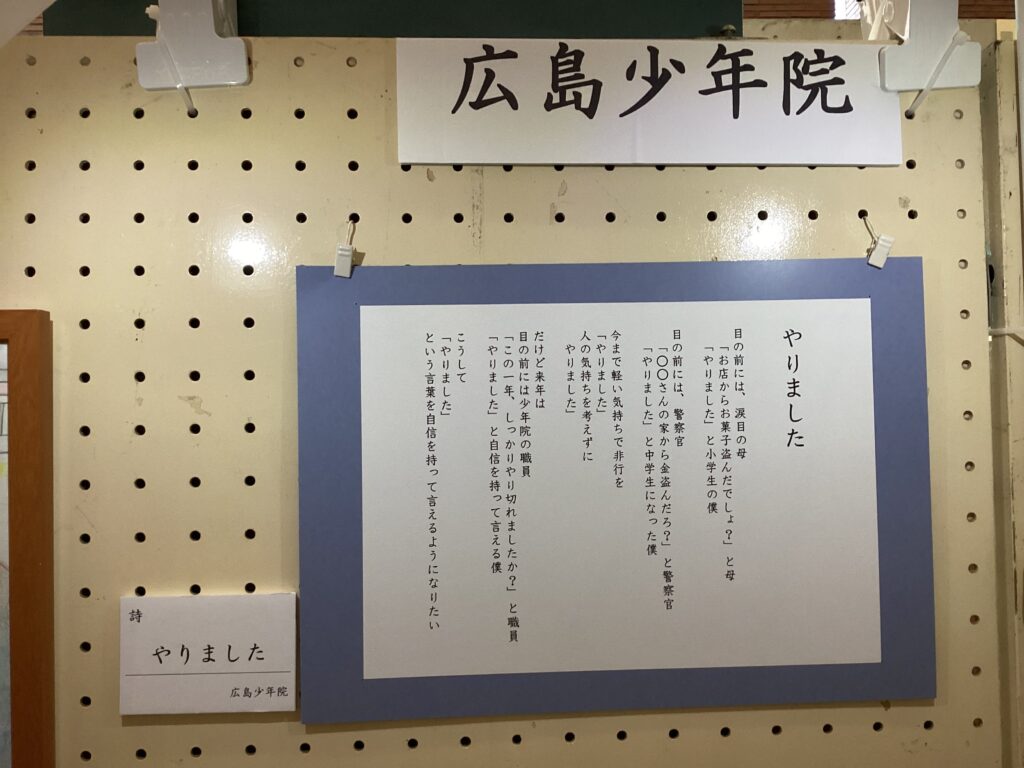 広島少年院
やりました
目の前には、涙目の母
「お店からお菓子盗んだでしょ？」と母
「やりました」と小学生の僕
目の前には、警察官
「〇〇さんの家から金盗んだろ？」と警察官
「やりました」と中学生になった僕
今まで軽い気持ちで非行を
「やりました」
人の気持ちを考えずに
やりました」
だけど来年は
目の前には少年院の職員
「この一年、しっかりやり切れましたか？」と職員
「やりました」と自信を持って言える僕
こうして
「やりました」
という言葉を自信を持って言えるようになりたい
詩
やりました
広島少年院